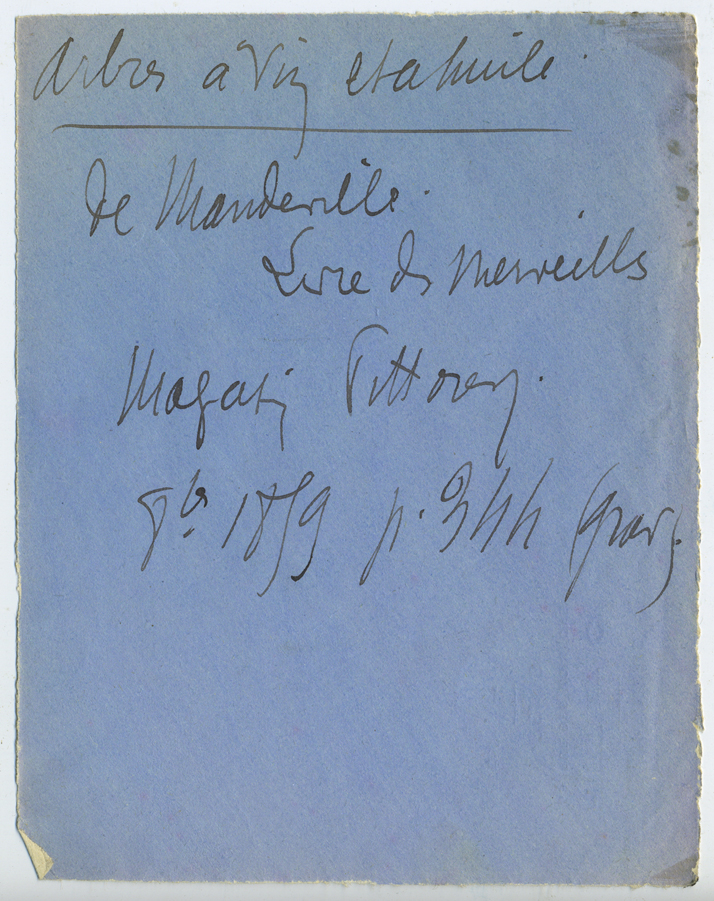 Arbres à Vin et à huile.
de Mandeville.
Livre des Merveilles
Magasin Pittoresq.
8bre 1859 p. 344 (grav.)